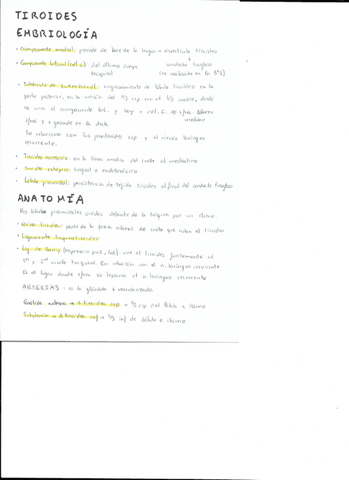 TIROIDES
EMBRIOLOGÍA
• Componente medial: procede de base de la lengua o divertículo tiroideo
• Componente lateral (cél. C) del último cuerpo conducto tirogloso
branquial (se oblitera en la 8ªS)
• Tubérculo de Zuckerkandl: engrosamiento de lóbulo tiroideo en la
parte posterior, en la unión del 1/3 sup con el 1/3 medio, donde
se une el componente lat. y hay + cél. C.
+ grande en la dcha.
Se relaciona con las paratiroides sup y el nervio laríngeo
recurrente.
• Tiroides accesorio: en la línea media del cuello al mediastino
• Tiroides ectópico: lingual o endotorácico
• Lóbulo piramidal: persistencia de tejido tiroideo al final del conducto tirogloso
ANATOMÍA
Dos lóbulos piramidales unidos delante de la tráquea por un istmo.
tiroidea: parte de la fascia visceral del cuello que rodea el tiroides
• Ligamento
• Lig. de Berry (suspensorio post, lat): une el tiroides firmemente al
y 2º anillo traqueal. En relación con el n. laríngeo recurrente
Es el lugar donde + se lesiona el n. laríngeo recurrente
ARTERIAS: es la glándula + vascularizada
Carótida externa → A. tiroidea sup → 2/3 sup del lóbulo e istmo
Subclavia → A. tiroidea inf → 1/3 inf de lóbulo e istmo